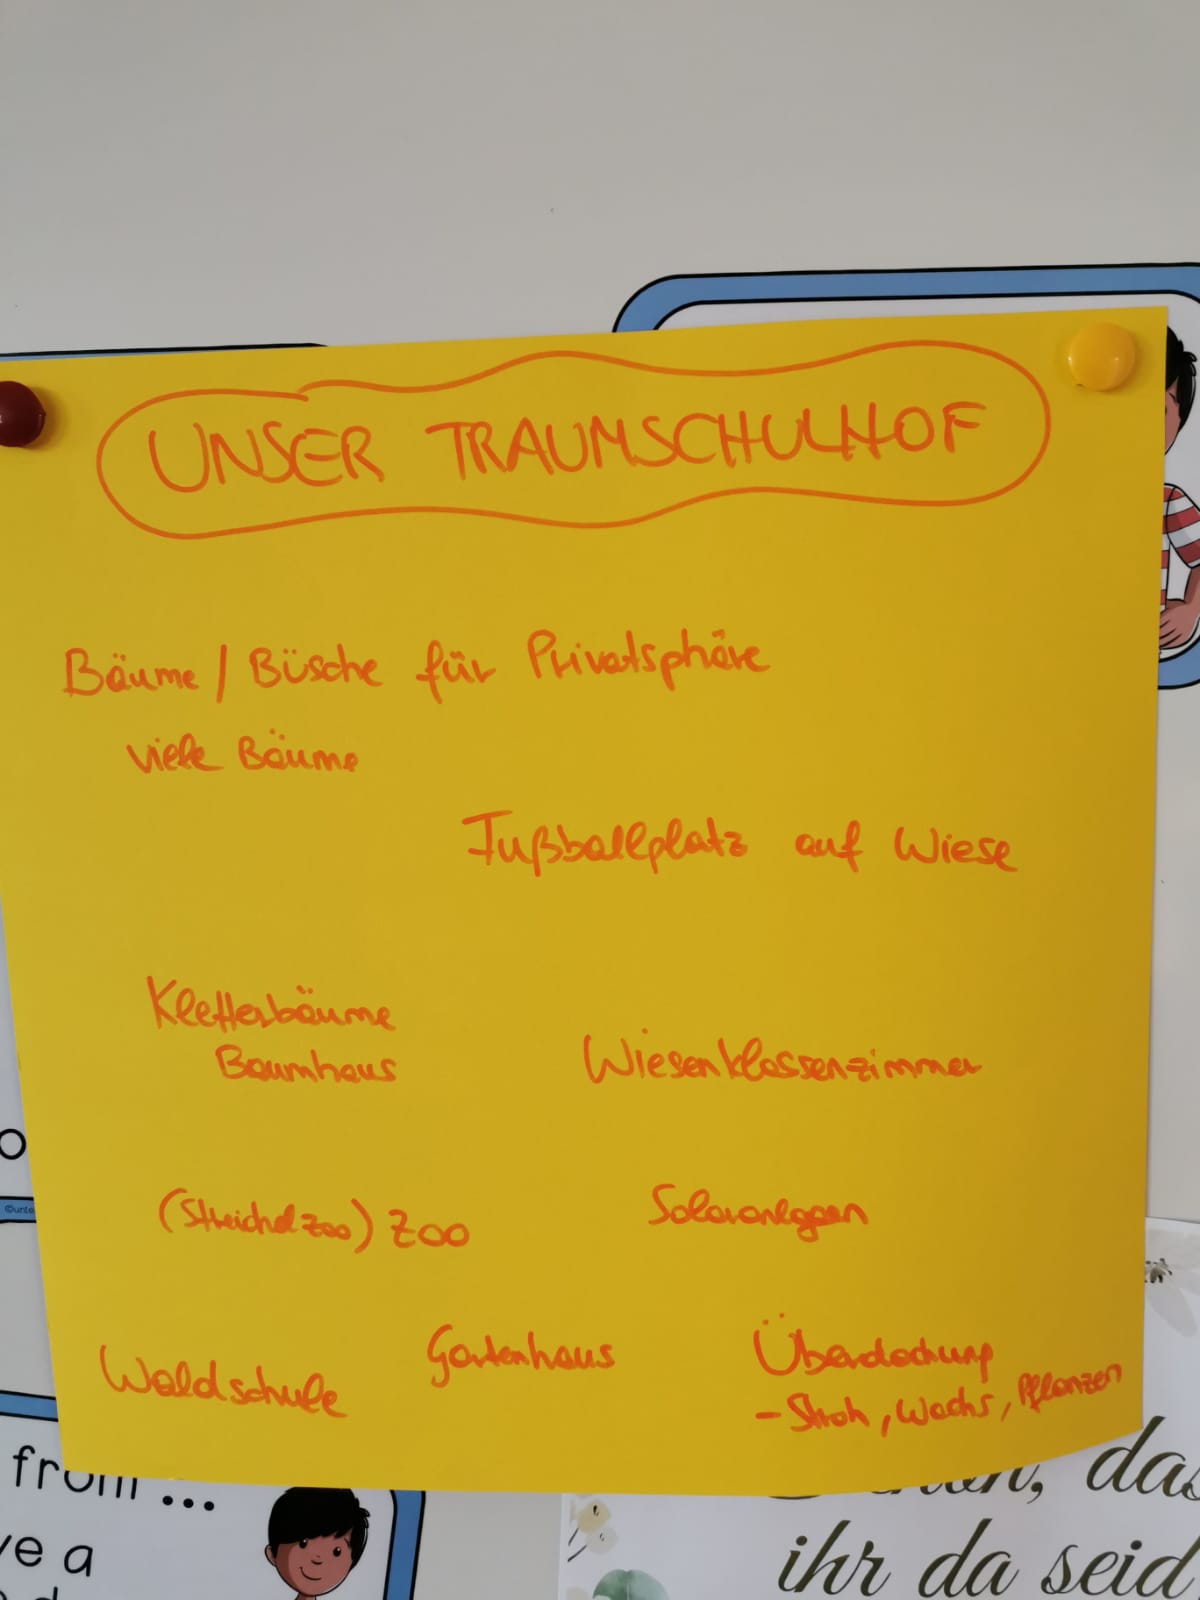 UNSER TRAUMSCHULHOF
Bäume / Büsche für Privatsphäre
viele Bäume
Fußballplatz auf Wiese
Kletterbäume
Baumhaus
Wiesenklassenzimmer
(Streichelzoo) Zoo
Solaranlagen
Waldschule
Gartenhaus
Überdachung
- Stroh, Wachs, Pflanzen
from ...
ve a
das
ihr da seid